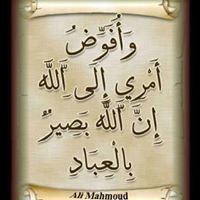 وَأُفَوِّضُ
أَمْرِي إِلَى اللَّهِ
إِنَّ اللَّهَ بَصِيرٌ
بِالْعِبَادِ
Ali Mahmoud